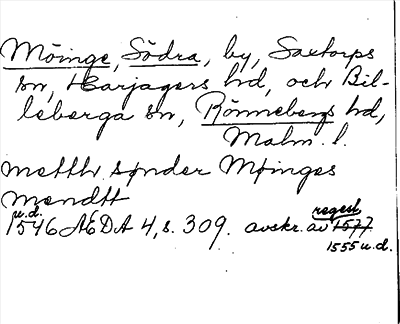 Möinge, Södra, by, Saxtorps
sn, Harjagers hd, och Bil-
leberga sn, Rönnebergs hd,
Malm. l.
metthr sønder Møinges
mendtt
u.d.
1546 ÆDA 4, s. 309. avskr. av 1577
regest
1555 u.d.